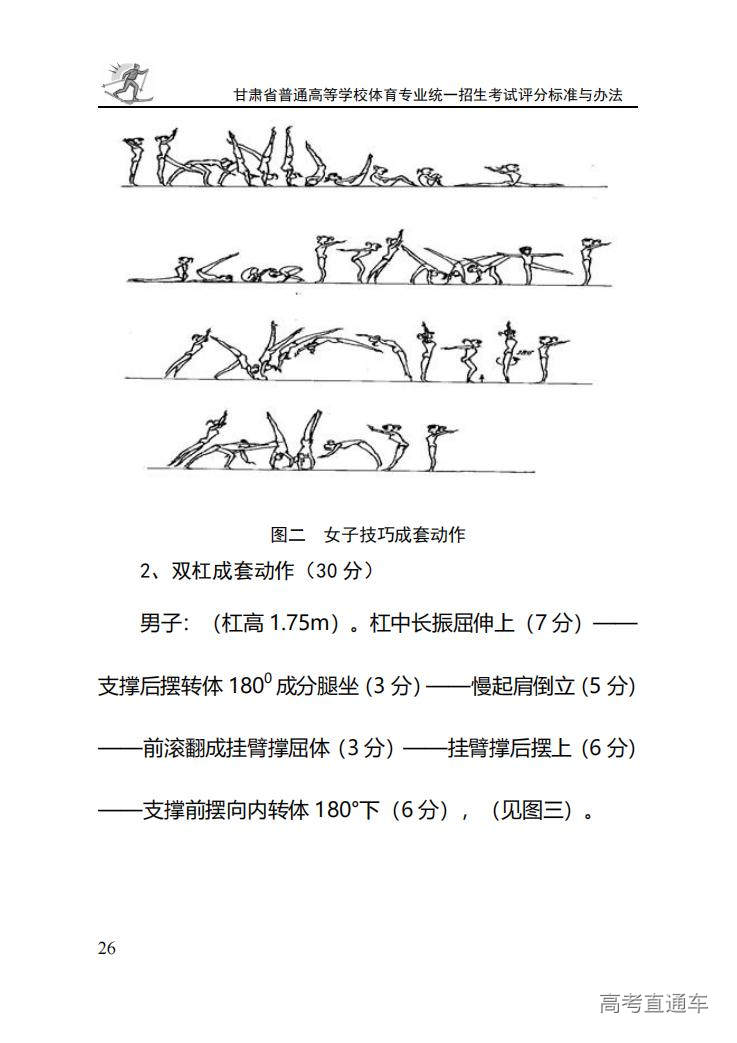 甘肃省普通高等学校体育专业统一招生考试评分标准与办法
180°
图二　女子技巧成套动作
2、双杠成套动作（30 分）
男子：（杠高 1.75m）。杠中长振屈伸上（7 分）——
支撑后摆转体 180⁰ 成分腿坐（3 分）——慢起肩倒立（5 分）
——前滚翻成挂臂撑屈体（3 分）——挂臂撑后摆上（6 分）
——支撑前摆向内转体 180°下（6 分），（见图三）。
26
高考直通车